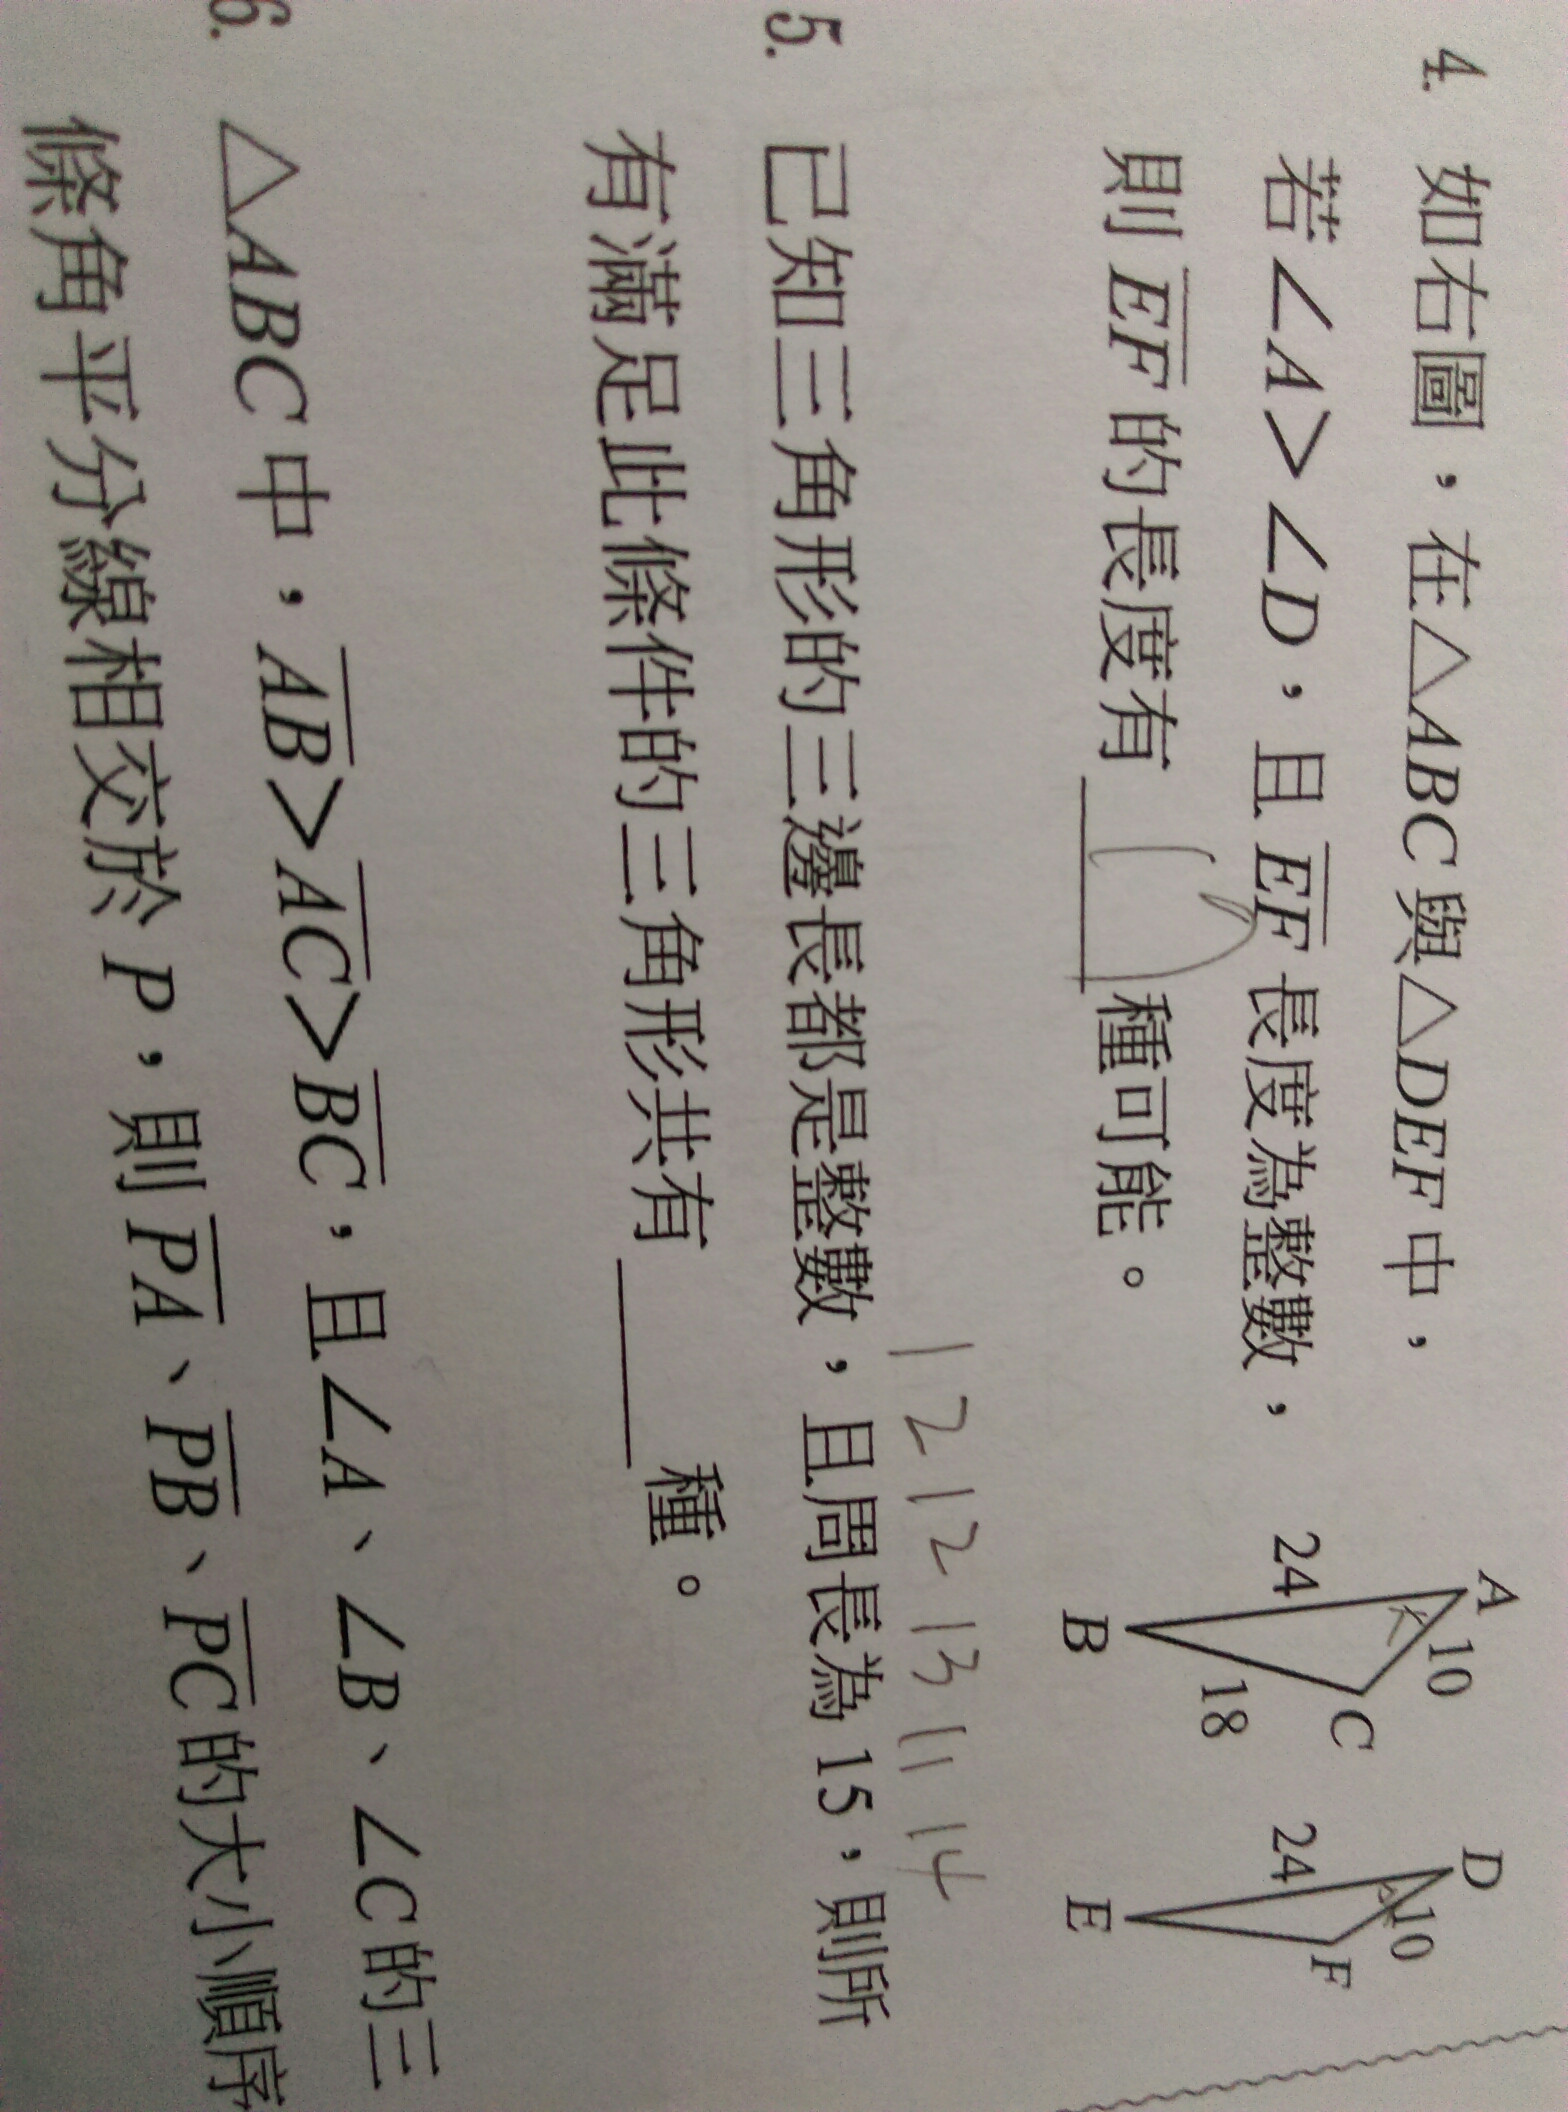 4. 如右圖，在△ABC與△DEF中，
若∠A＞∠D，且EF長度為整數，
則EF的長度有
種可能。
A
10
24
C
18
B
D
10
24
F
E
12 12 13 11 14
5. 已知三角形的三邊長都是整數，且周長為15，則所
有滿足此條件的三角形共有＿＿＿種。
6. △ABC中，AB＞AC＞BC，且∠A、∠B、∠C的三
條角平分線相交於P，則PA、PB、PC的大小順序